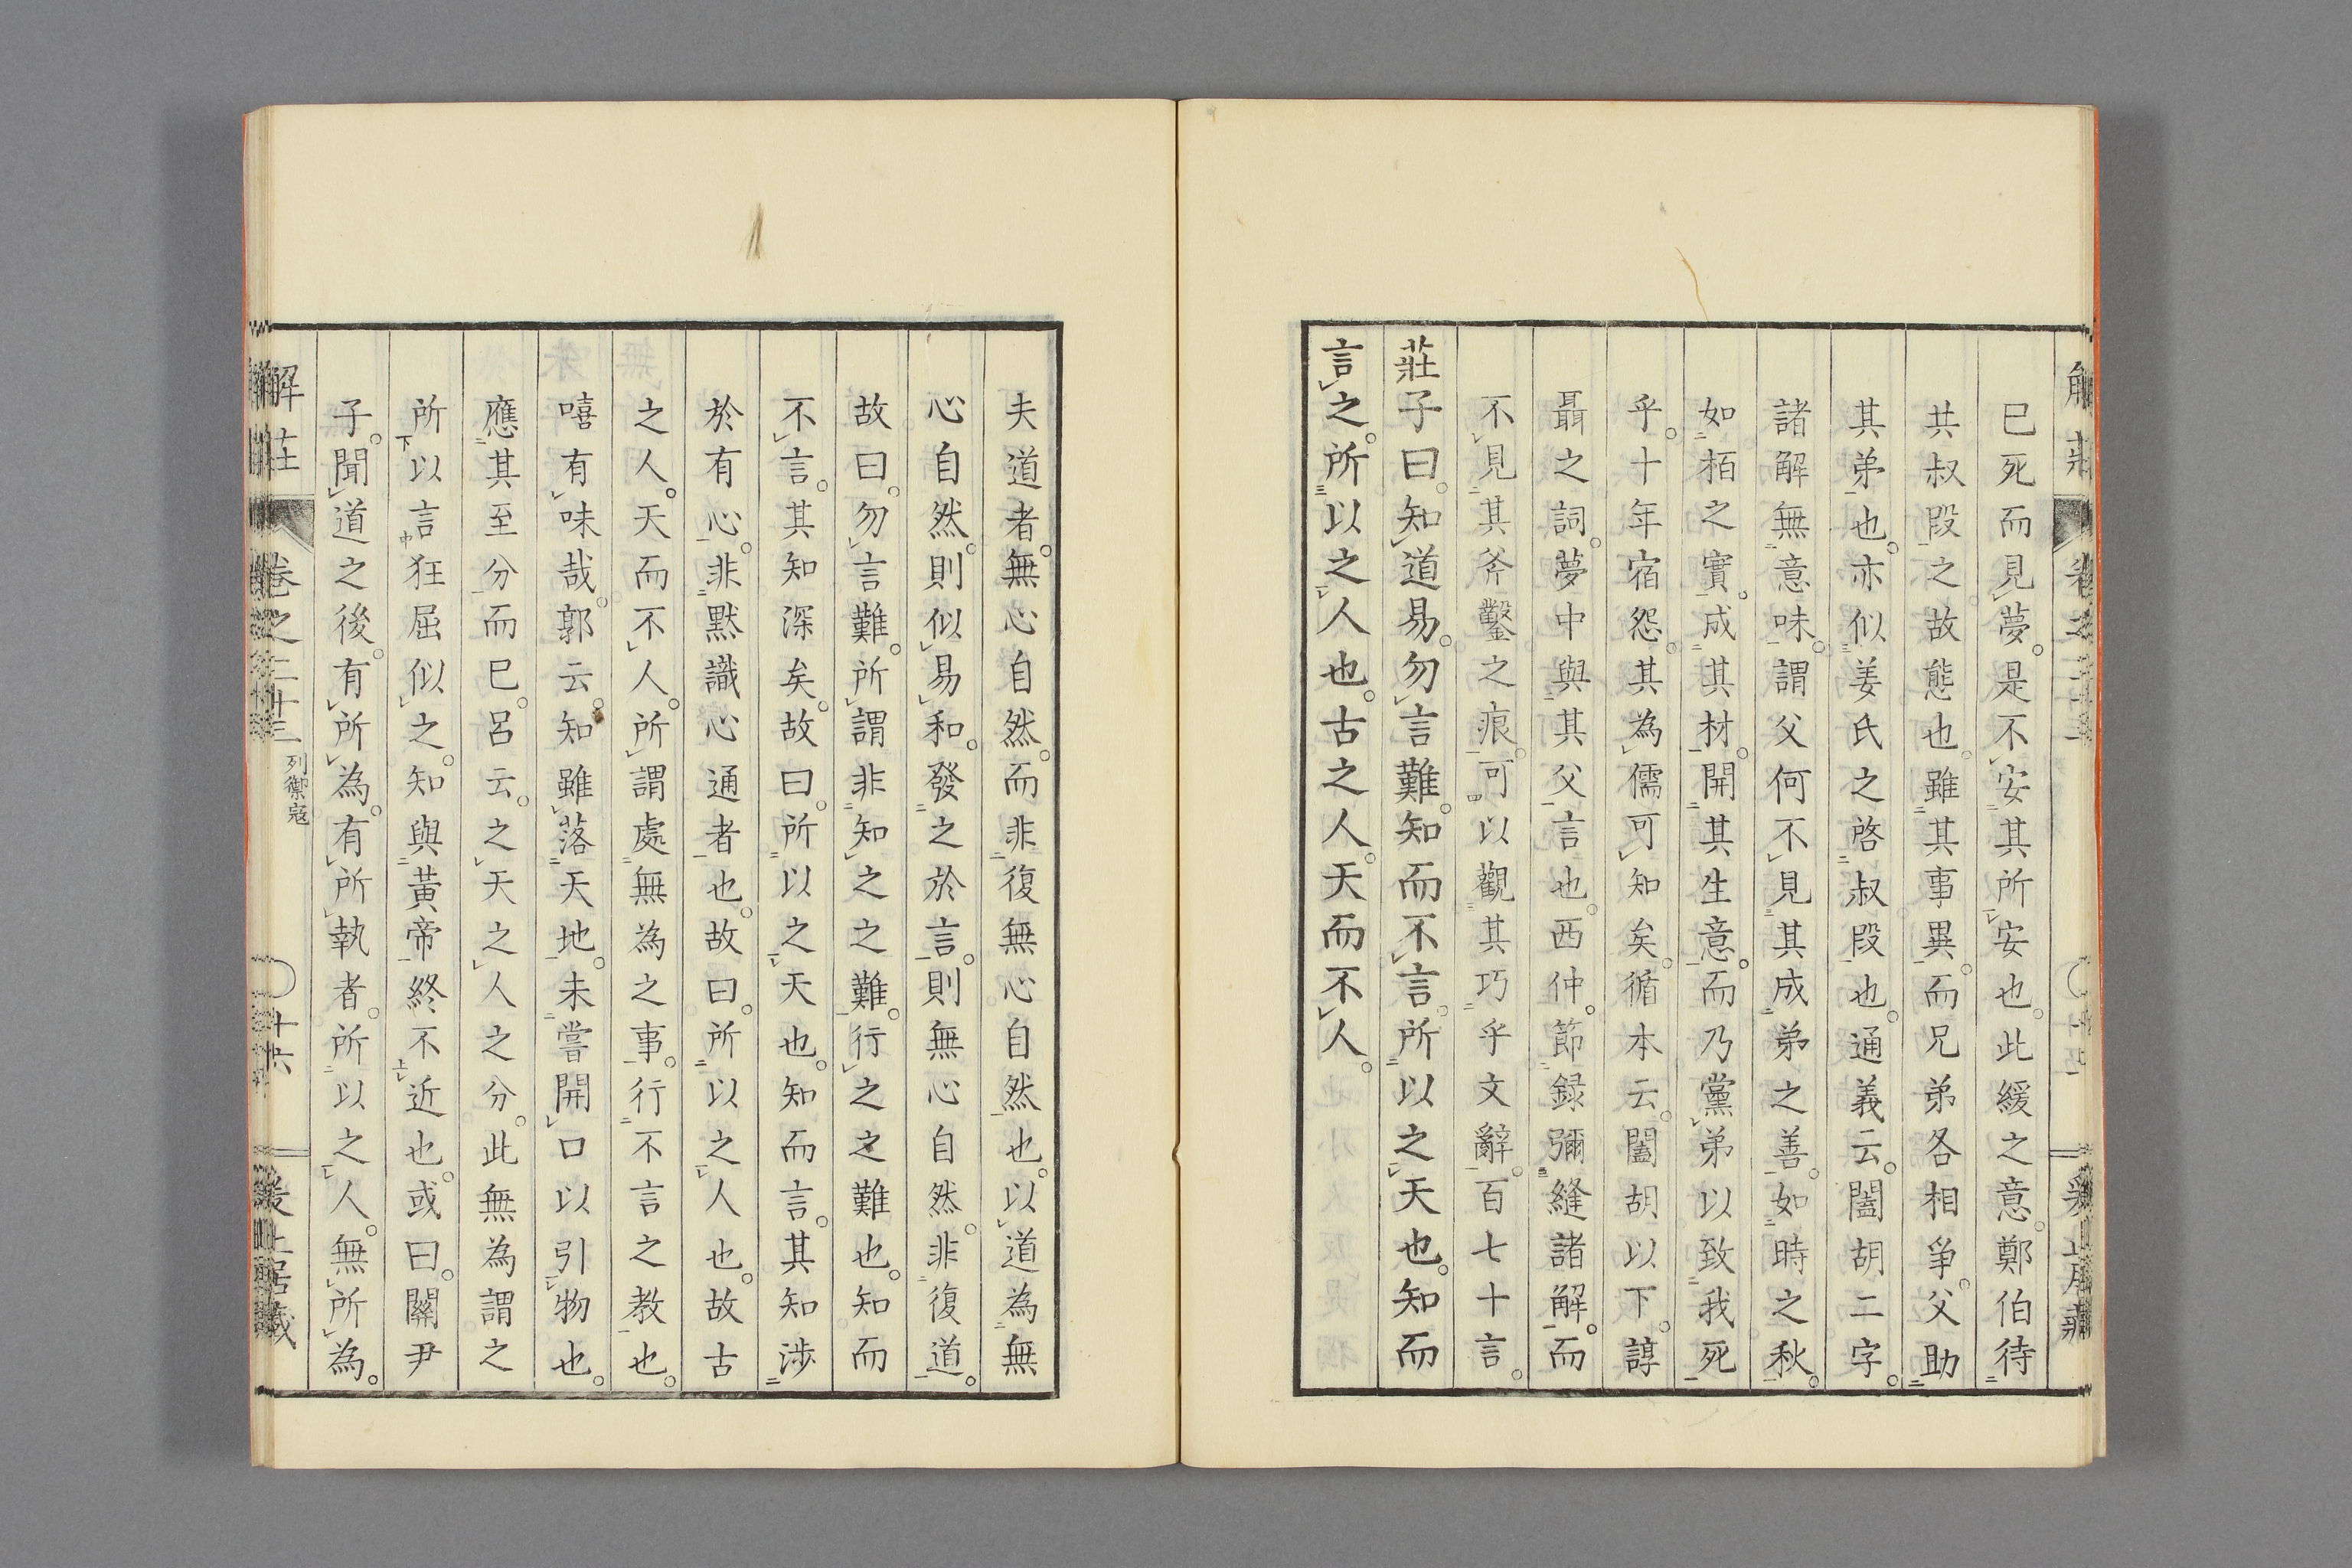 已死而見夢。是不安其所安也。此緩之意。鄭伯待
共叔段之故態也。雖其事異。而兄弟各相爭。父助
其弟也。亦似姜氏之啓叔段也。通義云。闔胡二字。
諸解無意味。謂父何不見其成弟之善。如時之秋。
如栢之實。成其材。開其生意。而乃黨弟以致我死
乎。十年宿怨。其為儒可知矣。循本云。闔胡以下。諄
聶之詞。夢中與其父言也。西仲。節録彌縫諸解。而
不見其斧鑿之痕。可以觀其巧乎文辭。百七十言。
莊子曰。知道易。勿言難。知而不言。所以之天也。知而
言之。所以之人也。古之人。天而不人。
夫道者。無心自然。而非復無心自然也。以道為無
心自然。則似易和。發之於言。則無心自然。非復道。
故曰。勿言難。所謂非知之之難。行之之難也。知而
不言。其知深矣。故曰。所以之天也。知而言。其知涉
於有心。非默識心通者也。故曰。所以之人也。故古
之人。天而不人。所謂處無為之事。行不言之教也。
嘻有味哉。郭云。知雖落天地。未嘗開口以引物也。
應其至分而已。呂云。之天之人之分。此無為謂之
所以言狂屈似之。知與黃帝終不近也。或曰。關尹
子。聞道之後。有所為。有所執者。所以之人。無所為。
解莊
卷之二十三
列禦寇
十六